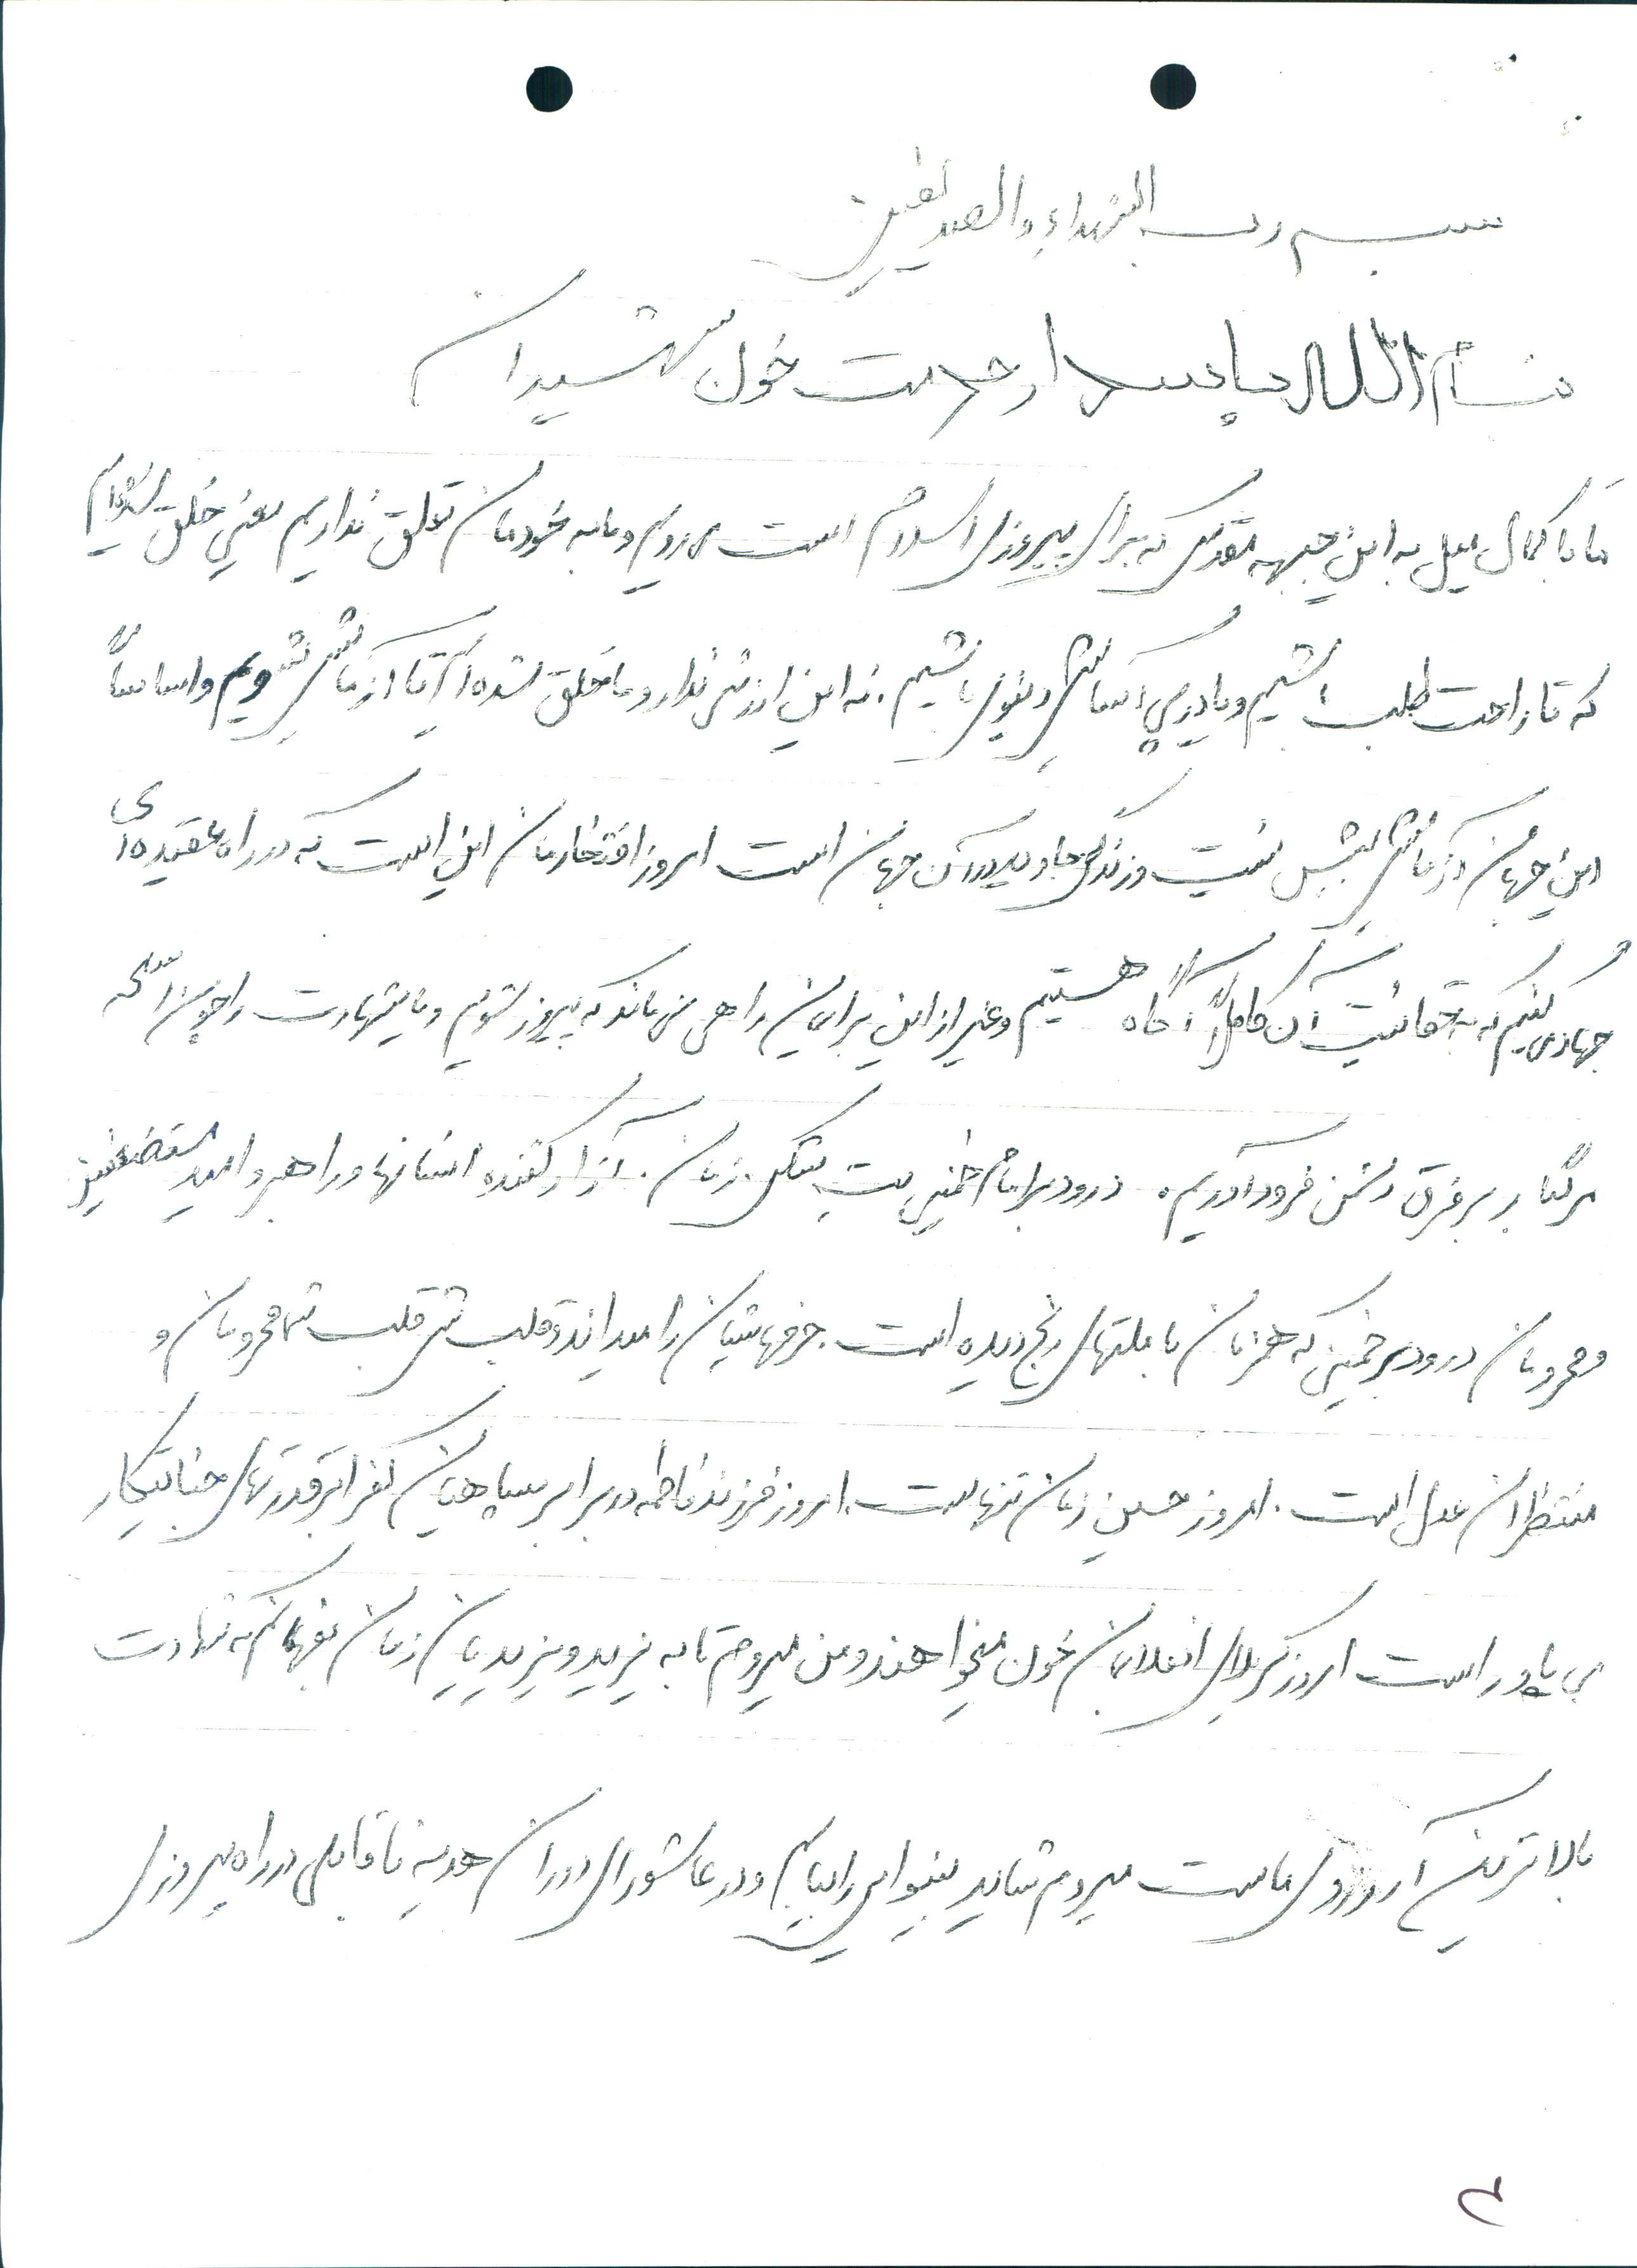 بسم رب الشهداء والصدیقین
بنام الله پاسدار حرمت خون شهیدان
ما با کمال میل به این جبهه مقدس که برای پیروزی اسلام است می رویم و ما به خودمان تعلق نداریم یعنی خلق نشده ایم
که تا راحت طلب باشیم و یا در پی آسایش دنیوی باشیم. نه این ارزش ندارد و ما خلق شده ایم تا آزمایش شویم و اساساً
این جهان آزمایش بیش نیست و زندگی جاوید در آن جهان است امروز افتخارمان این است که در راه عقیده ای
جهاد می کنیم که به حقانیت آن کاملاً آگاه هستیم و غیر از این برایمان راهی نمی ماند که پیروز شویم و یا شهادت را چون اسلحه
مرگبار بر فرق دشمن فرود آوریم. درود بر امام خمینی بت شکن زمان. آزاد کننده انسانها و راهبر و امید مستضعفین
و محرومان درود بر خمینی که همزمان با ملتهای رنج دیده است. حرفهایشان را میداند و قلبش قلب تمام محرومان و
منتظران عدل است. امروز حسین زمان تنهاست. امروز فرزند فاطمه در برابر سپاهیان کفر ابرقدرتهای جنایتکار
بی یاور است امروز کربلای انقلابمان خون میخواهند و من میروم تا به یزید و یزیدیان زمان بفهمانم که شهادت
بالاترین آرزوی ماست میروم شاید نینوایی را بیابم و در عاشورای دوران هدیه ناقابلی در راه پیروزی
۳